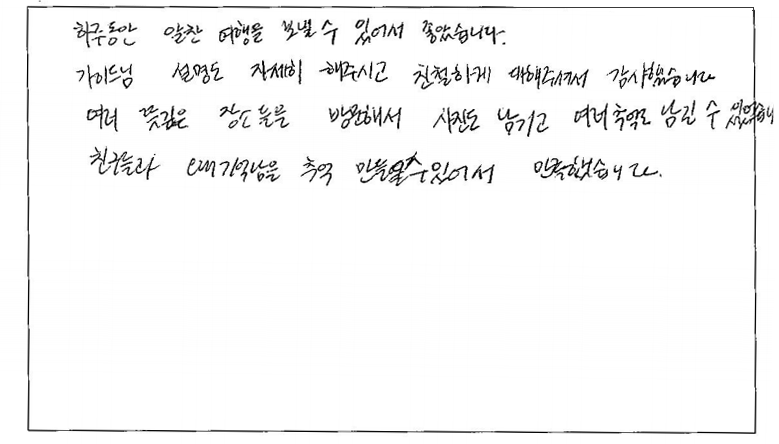 하루동안 알찬 여행을 보낼 수 있어서 좋았습니다.
가이드님 설명도 자세히 해주시고 친절하게 대해주셔서 감사했습니다
여러 뜻깊은 장소들을 방문해서 사진도 남기고 여러 추억도 남길 수 있었습니
친구들과 오래 기억남을 추억 만들 수 있어서 만족했습니다.